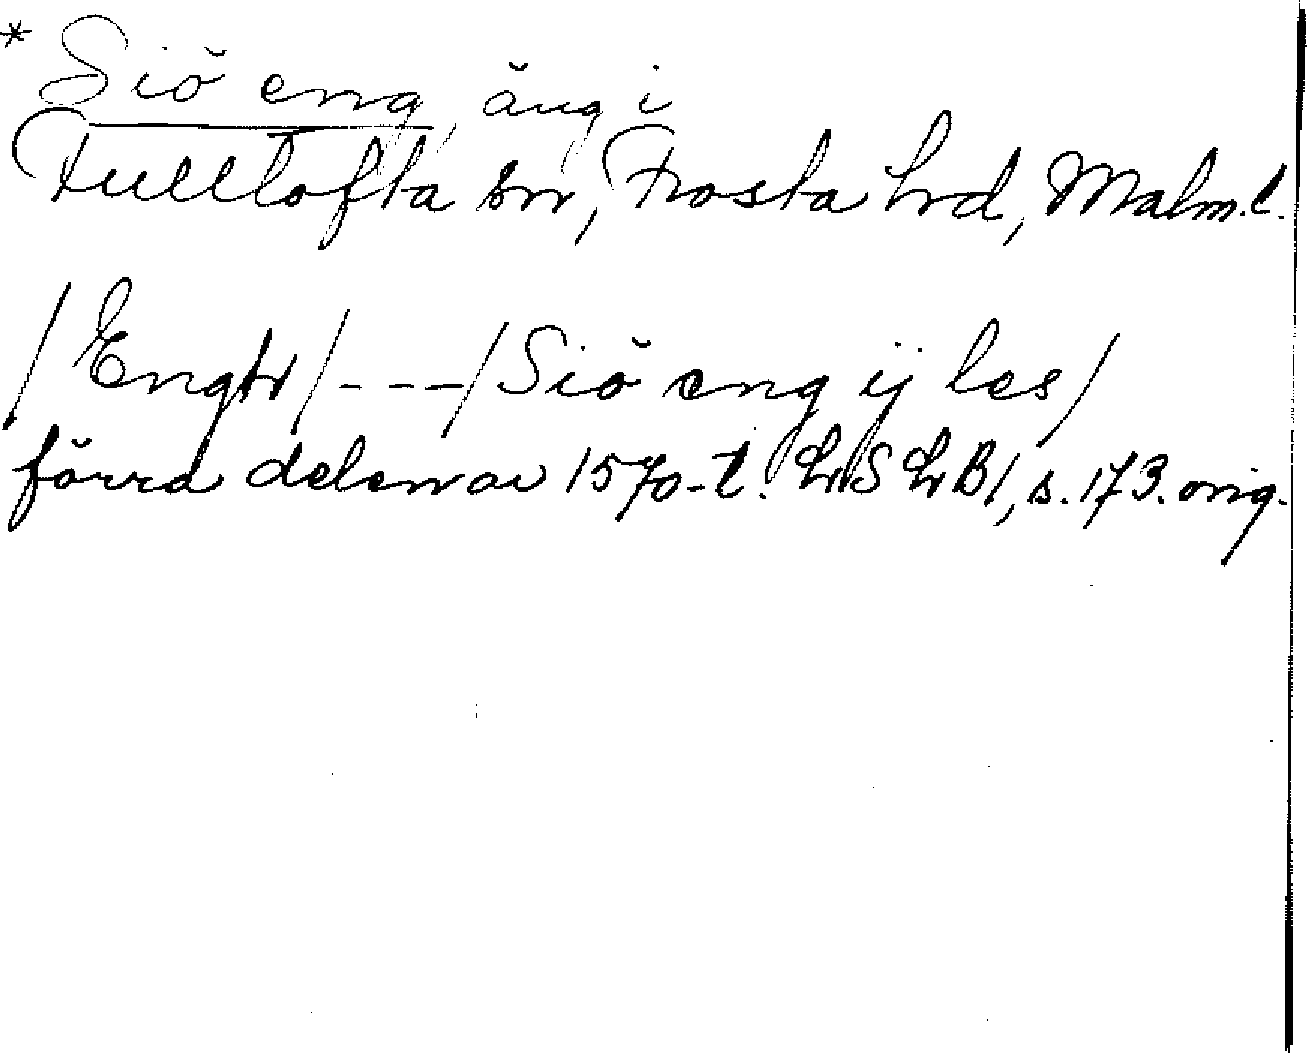 * Siö eng, äng i
Fulltofta sn, Frosta hd, Malm.l.
/Engh/---/Siö eng ij les/
förra delen av 1570-t. LSLB1, s. 173. orig.